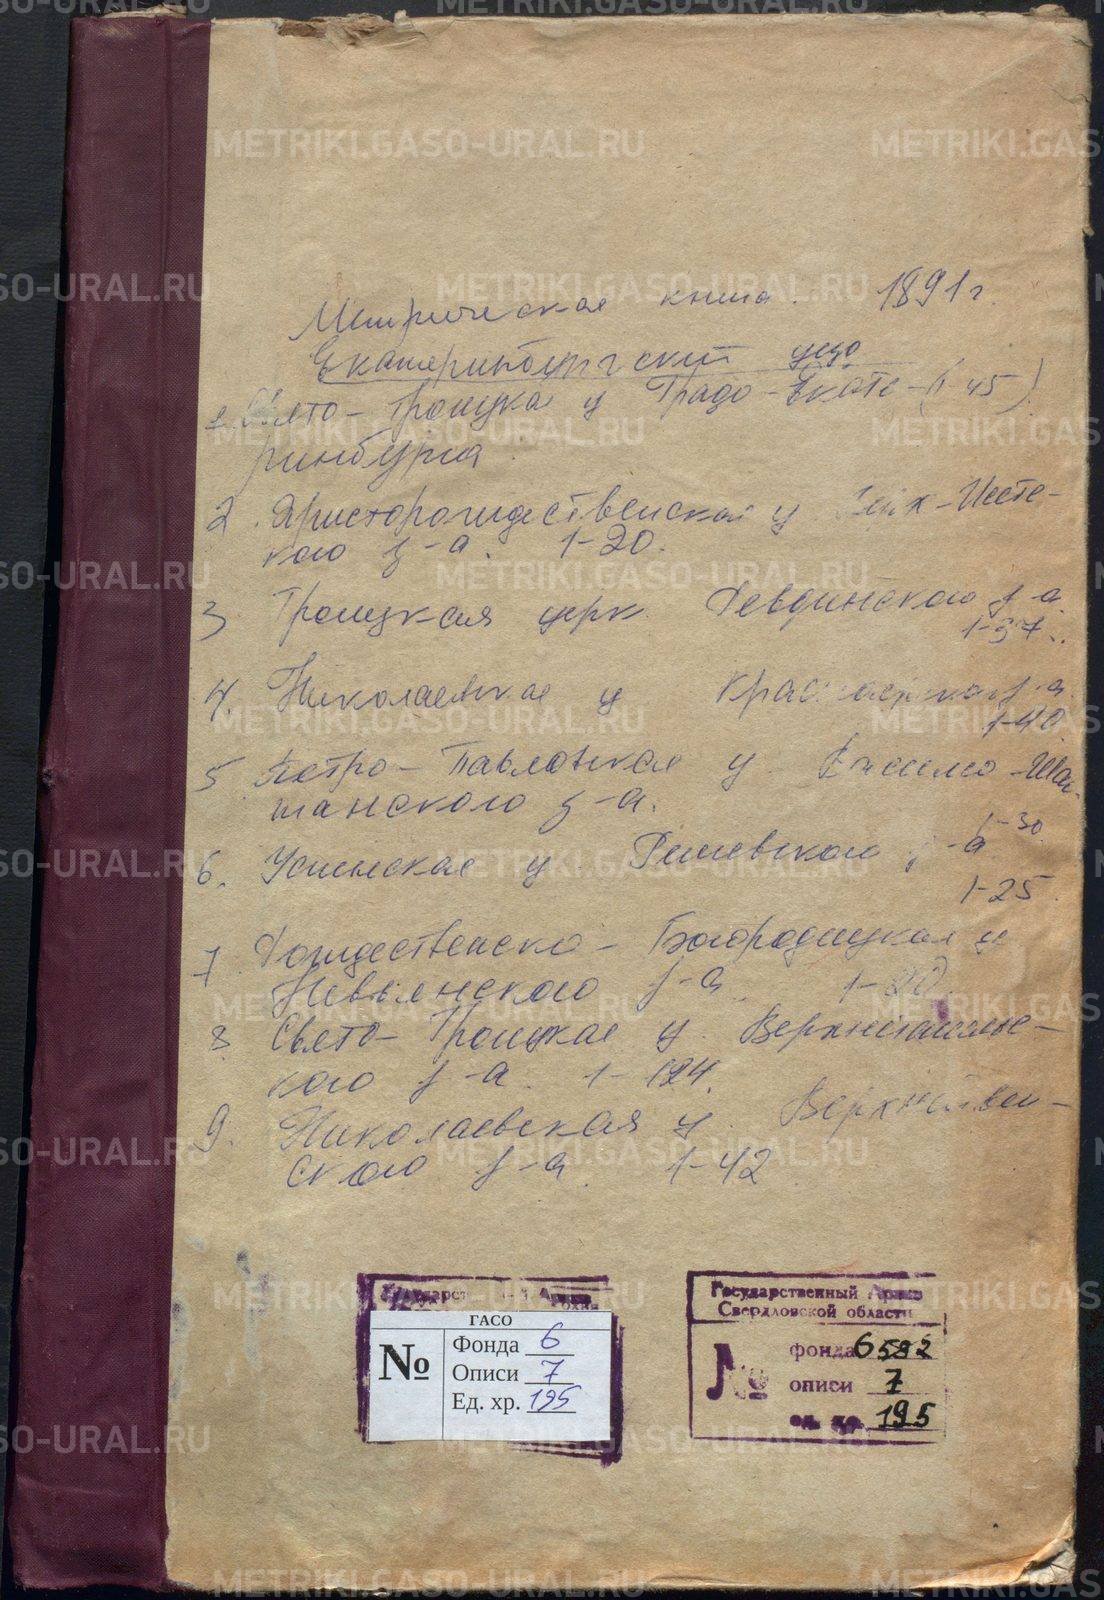 Метрическая книга. 1891 г.
Екатеринбургский уезд
1. Свято-Троицкая ц Градо-Екате- (1-45)
ринбурга.
2. Христорождественская ц Верх-Исетс-
кого з-а. 1-20.
3 Троицкая церк. Ревдинского з-а.
1-37.
4. Николаевская ц з-а
1-40.
5. Петро-Павловская ц. Васильево-Шай-
танского з-а.
1-30
6. Успенская ц Режевского з-а
1-25.
7. Рождественско-Богородицкая ц
Невьянского з-а.
8 Свято-Троицкая ц. Верхнетагильс-
кого з-а. 1-124.
9. Николаевская ц.
ского з-а. 1-42
Государственный Архив
Свердловской области
№
фонда 6
описи 7
ед. хр. 195
ГАСО
№
Фонда 6
Описи 7
Ед. хр. 195
METRIKI.GASO-URAL.RU